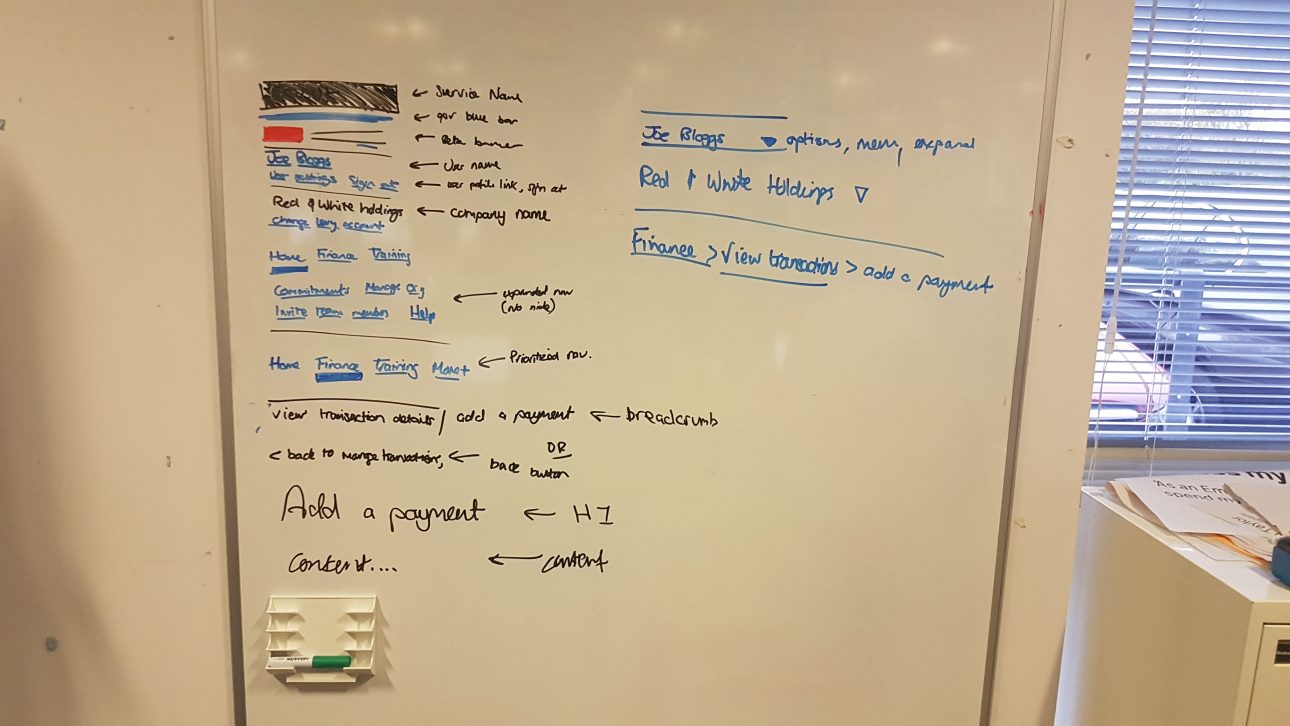 ← Service Name
← gov blue bar
← Beta banner
Joe Bloggs ← User name
User settings Sign out ← user profile link, sign out
Red & White holdings ← Company name
change levy account
Home Finance Training
Commitments Manage Org
Invite team member Help
← expanded nav
Home Finance Training More+ ← Prioritised nav.
View transaction details / add a payment ← breadcrumb
OR
< back to manage transactions, ← back button
Add a payment ← H1
Content.... ← content
Joe Bloggs ▼ options, menu, expand
Red & White Holdings ▽
Finance > View transactions > add a payment
'As an Em
spend m
Taylor